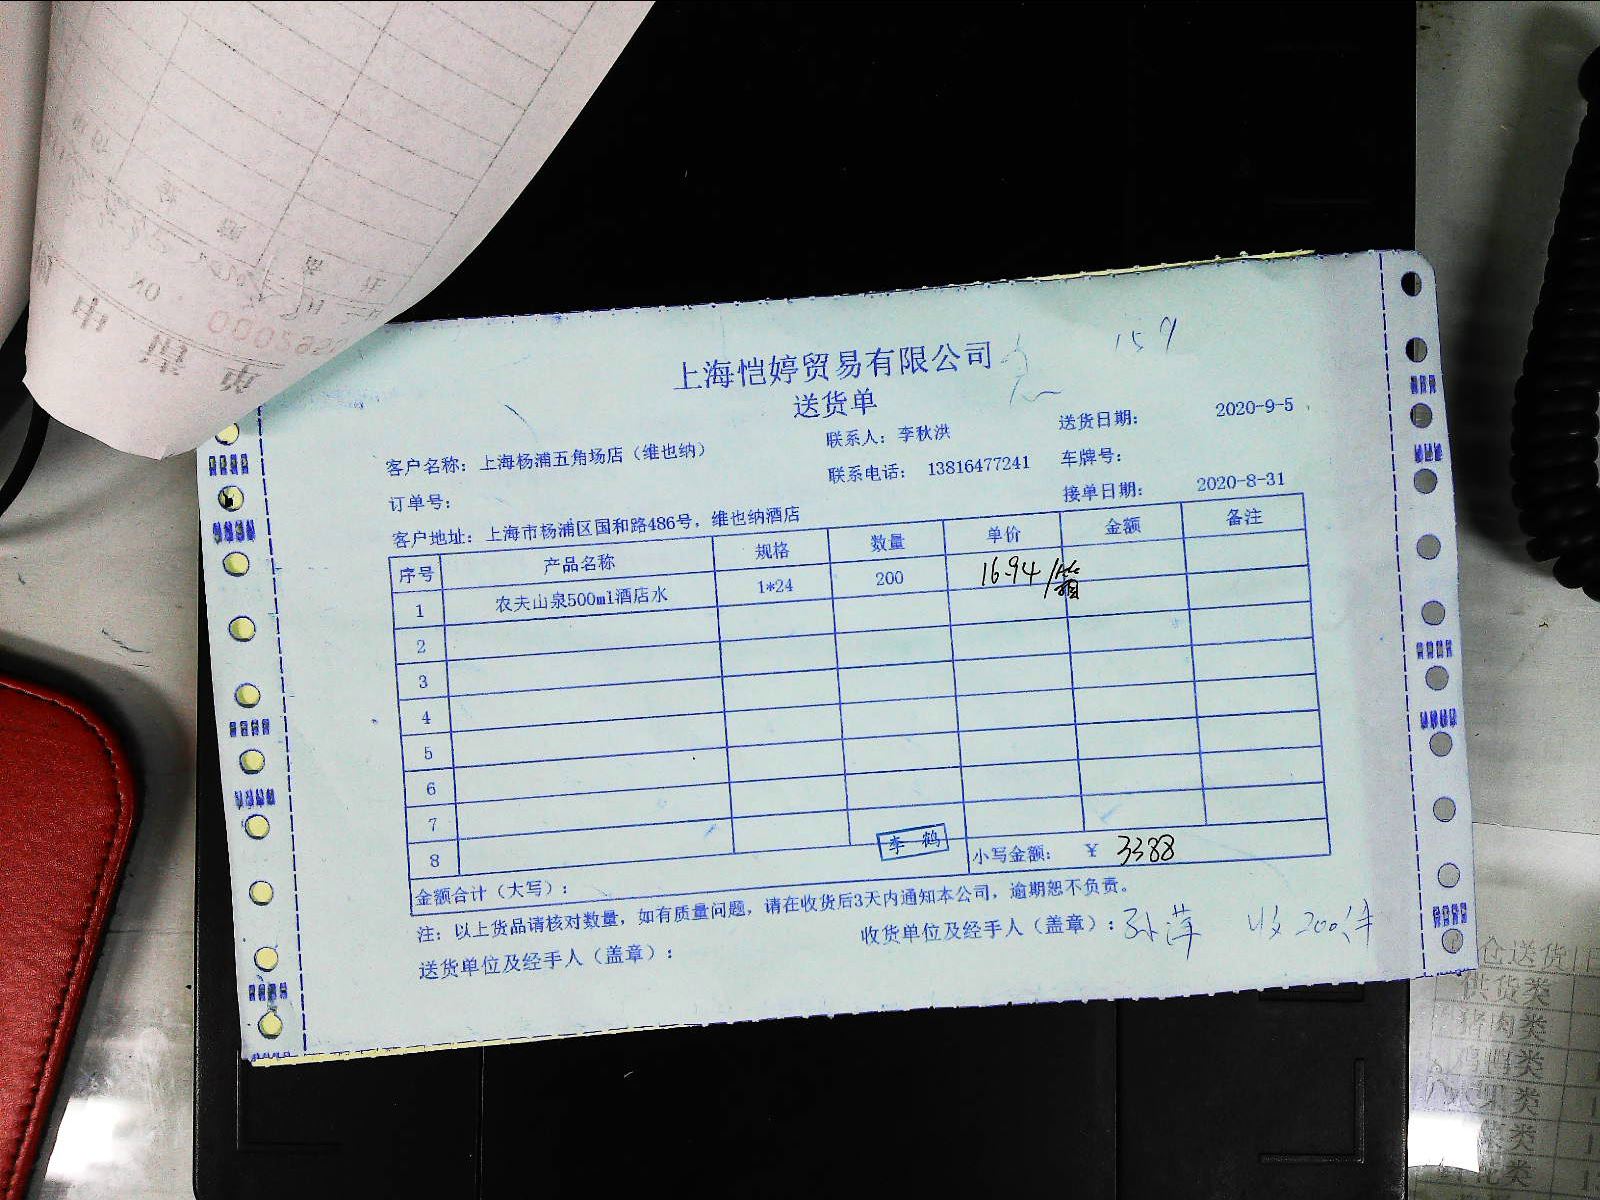 159
上海恺婷贸易有限公司
送货单
客户名称： 上海杨浦五角场店（维也纳） 联系人： 李秋洪 送货日期： 2020-9-5
订单号： 联系电话： 13816477241 车牌号：
客户地址： 上海市杨浦区国和路486号，维也纳酒店 接单日期： 2020-8-31
序号 产品名称 规格 数量 单价 金额 备注
1 农夫山泉500ml酒店水 1*24 200 16.94/箱
2
3
4
5
6
7
8
李 鹤
金额合计（大写）： 小写金额： ￥ 3388
注：以上货品请核对数量，如有质量问题，请在收货后3天内通知本公司，逾期恕不负责。
送货单位及经手人（盖章）： 收货单位及经手人（盖章）：孙萍 收200件
仓送货
供货类
猪肉类
鸡鸭类